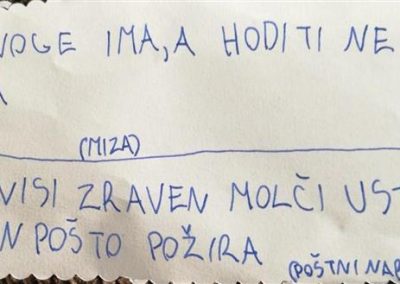 NOGE IMA, A HODITI NE
A
(MIZA)
VISI ZRAVEN MOLČI UST
N POŠTO POŽIRA
(POŠTNI NAB